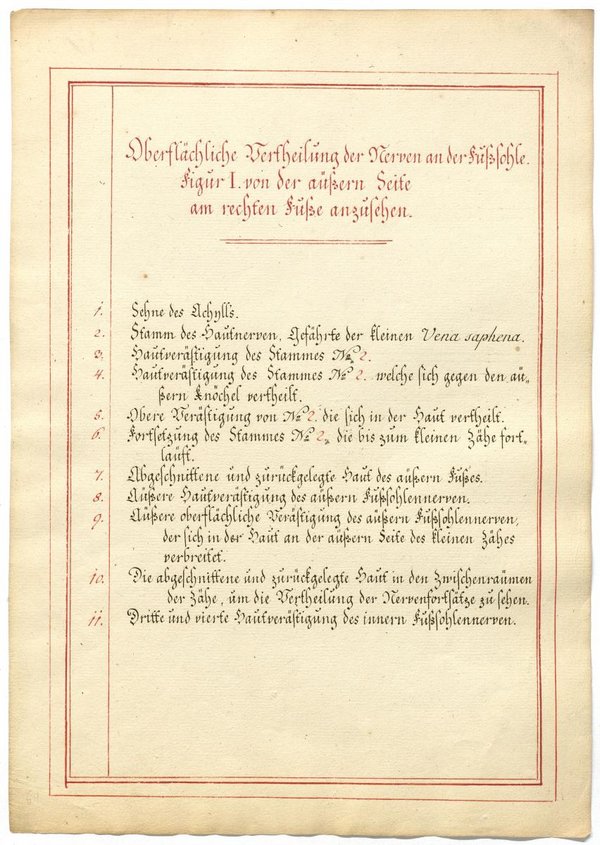 Oberflächliche Vertheilung der Nerven an der Fußsohle.
Figur I. von der äußern Seite
am rechten Fuße anzusehen.
1. Sehne des Achylls.
2. Stamm des Hautnerven, Gefährte der kleinen Vena saphena.
3. Hautverästigung des Stammes No 2.
4. Hautverästigung des Stammes No 2. welche sich gegen den äu=
ßern Knöchel vertheilt.
5. Obere Verästigung von No 2. die sich in der Haut vertheilt.
6. Fortsetzung des Stammes No 2, die bis zum kleinen Zähe fort=
lauft.
7. Abgeschnittene und zurückgelegte Haut des äußern Fußes.
8. Äußere Hautverästigung des äußern Fußsohlennerven.
9. Äußere oberflächliche Verästigung des äußern Fußsohlennerven,
der sich in der Haut an der äußern Seite des kleinen Zähes
verbreitet.
10. Die abgeschnittene und zurückgelegte Haut in den Zwischenräumen
der Zähe, um die Vertheilung der Nervenfortsätze zu sehen.
11. Dritte und vierte Hautverästigung des innern Fußsohlennerven.